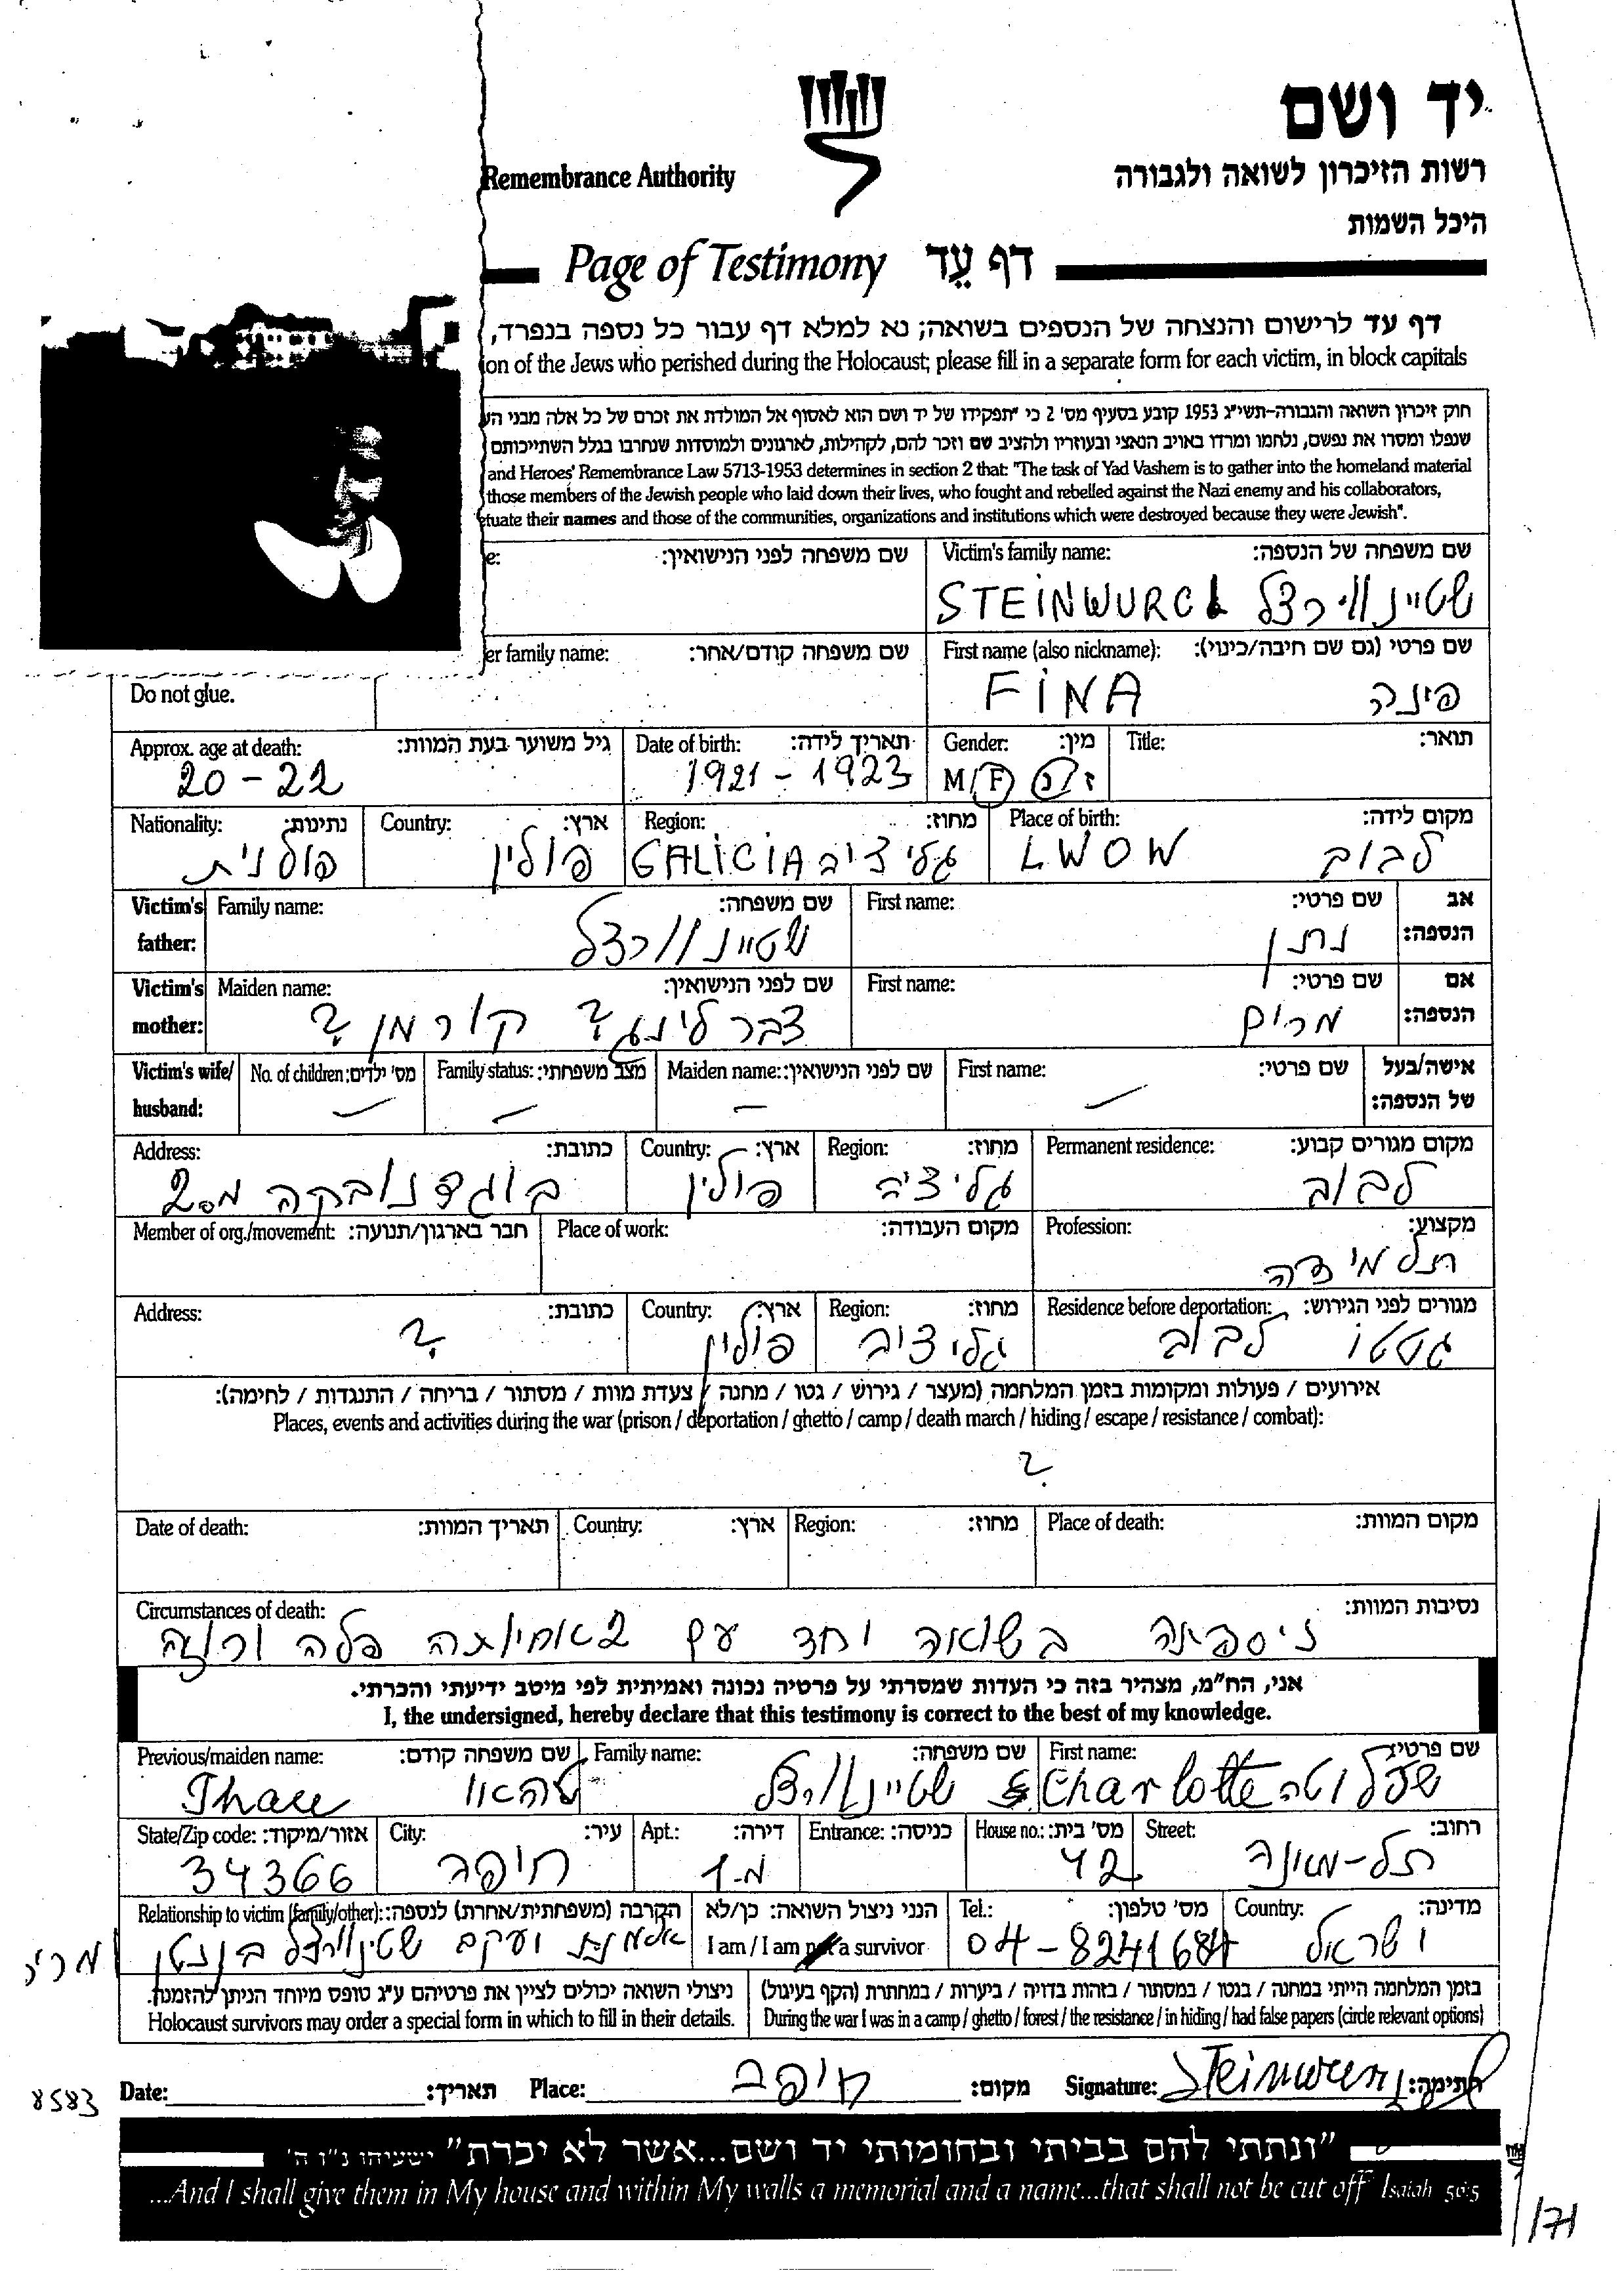 יד ושם
Remembrance Authority
רשות הזיכרון לשואה ולגבורה
היכל השמות
Page of Testimony דף עֵד
דף עד לרישום והנצחה של הנספים בשואה; נא למלא דף עבור כל נספה בנפרד,
on of the Jews who perished during the Holocaust; please fill in a separate form for each victim, in block capitals
חוק זיכרון השואה והגבורה-תשי"ג 1953 קובע בסעיף מס' 2 כי "תפקידו של יד ושם הוא לאסוף אל המולדת את זכרם של כל אלה מבני הע
שנפלו ומסרו את נפשם, נלחמו ומרדו באויב הנאצי ובעוזריו ולהציב שם וזכר להם, לקהילות, לארגונים ולמוסדות שנחרבו בגלל השתייכותם
and Heroes' Remembrance Law 5713-1953 determines in section 2 that: "The task of Yad Vashem is to gather into the homeland material
those members of the Jewish people who laid down their lives, who fought and rebelled against the Nazi enemy and his collaborators,
etuate their names and those of the communities, organizations and institutions which were destroyed because they were Jewish".
e: שם משפחה לפני הנישואין: Victim's family name: שם משפחה של הנספה:
שטיינוורצל
er family name: שם משפחה קודם/אחר: First name (also nickname): שם פרטי (גם שם חיבה/כינוי):
FINA פינה
Do not glue.
Approx. age at death: גיל משוער בעת המוות: Date of birth: תאריך לידה: Gender: מין: Title: תואר:
20-22 1921-1923 M/F ז/נ
Nationality: נתינות: Country: ארץ: Region: מחוז: Place of birth: מקום לידה:
פולנית פולין GALICIA גליציה LWOW לבוב
Victim's father: Family name: שם משפחה: First name: שם פרטי: אב הנספה:
שטיינוורצל נתן
Victim's mother: Maiden name: שם לפני הנישואין: First name: שם פרטי: אם הנספה:
צברלינג ? קורמן ? מרים
Victim's wife/husband: No. of children: מס' ילדים: Family status: מצב משפחתי: Maiden name: שם לפני הנישואין: First name: שם פרטי: אישה/בעל של הנספה:
Address: כתובת: Country: ארץ: Region: מחוז: Permanent residence: מקום מגורים קבוע:
בוגדנובקה מס 2 פולין גליציה לבוב
Member of org./movement: חבר בארגון/תנועה: Place of work: מקום העבודה: Profession: מקצוע:
תלמידה
Address: כתובת: Country: ארץ: Region: מחוז: Residence before deportation: מגורים לפני הגירוש:
? פולין גליציה גטטו לבוב
אירועים / פעולות ומקומות בזמן המלחמה (מעצר / גירוש / גטו / מחנה / צעדת מוות / מסתור / בריחה / התנגדות / לחימה):
Places, events and activities during the war (prison / deportation / ghetto / camp / death march / hiding / escape / resistance / combat):
?
Date of death: תאריך המוות: Country: ארץ: Region: מחוז: Place of death: מקום המוות:
Circumstances of death: נסיבות המוות:
ניספתה בשואה יחד עם 2 אחיותה פלה ורוזה
אני, הח"מ, מצהיר בזה כי העדות שמסרתי על פרטיה נכונה ואמיתית לפי מיטב ידיעתי והכרתי.
I, the undersigned, hereby declare that this testimony is correct to the best of my knowledge.
Previous/maiden name: שם משפחה קודם: Family name: שם משפחה: First name: שם פרטי:
טהאו שטיינוורצל Charlotte שרלוטה
State/Zip code: אזור/מיקוד: City: עיר: Apt.: דירה: Entrance: כניסה: House no.: מס' בית: Street: רחוב:
34366 חיפה 42
Relationship to victim (family/other): הקרבה (משפחתית/אחרת) לנספה: הנני ניצול השואה: כן/לא Tel.: מס' טלפון: Country: מדינה:
אלמנת יעקב I am / I am not a survivor 04-8241684 ישראל
בזמן המלחמה הייתי במחנה / בגטו / במסתור / בזהות בדויה / ביערות / במחתרת (הקף בעיגול)
ניצולי השואה יכולים לציין את פרטיהם ע"ג טופס מיוחד הניתן להזמנה.
Holocaust survivors may order a special form in which to fill in their details. During the war I was in a camp / ghetto / forest / the resistance / in hiding / had false papers (circle relevant options)
8583 Date: תאריך: Place: חיפה מקום: Signature: חתימה:
"ונתתי להם בביתי ובחומותי יד ושם...אשר לא יכרת" ישעיהו נ"ו ה'
...And I shall give them in My house and within My walls a memorial and a name...that shall not be cut off Isaiah 56:5
/171